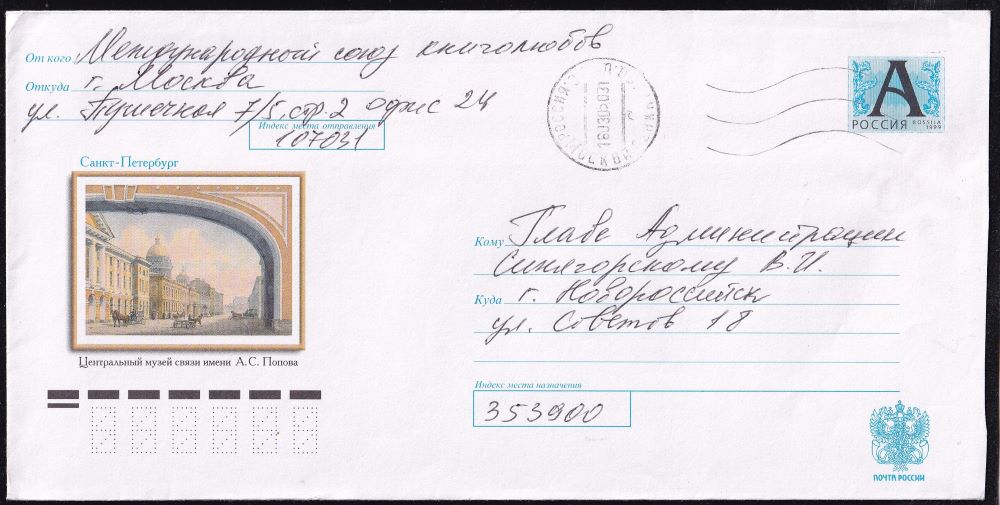 От кого Международный союз книголюбов
Откуда г. Москва
ул. Пушечная 7/5, стр. 2 офис 24
Индекс места отправления
107031
Санкт-Петербург
Центральный музей связи имени А.С. Попова
РОССИЯ
МОСКВА
А
РОССИЯ ROSSIJA
1999
Кому Главе Администрации
Синягорскому В.И.
Куда г. Новороссийск
ул. Советов 18
Индекс места назначения
353900
ПОЧТА РОССИИ